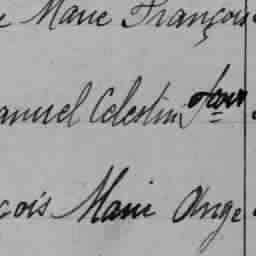 e Marie François
anuel Celestin
çois Marie Ange